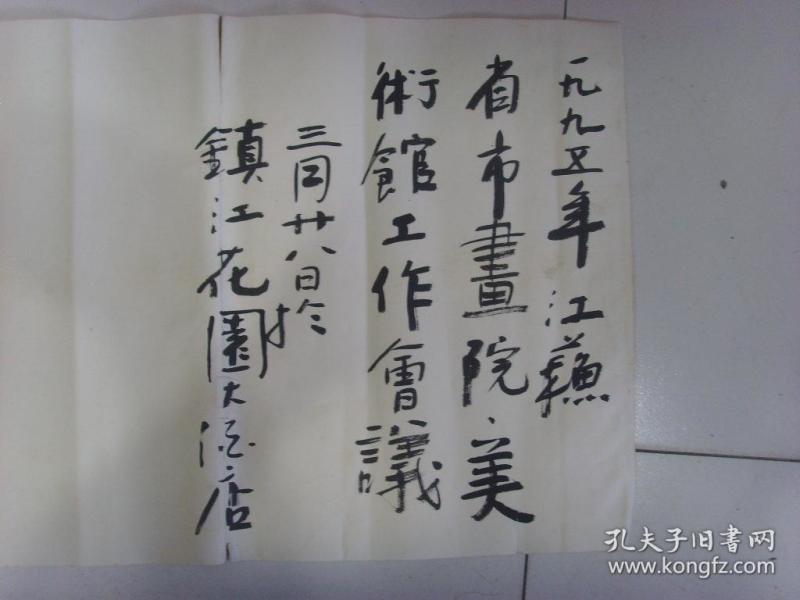 一九九五年江蘇
省市畫院、美
術館工作會議
三月廿八日於
鎮江花園大酒店
孔夫子旧书网
www.kongfz.com